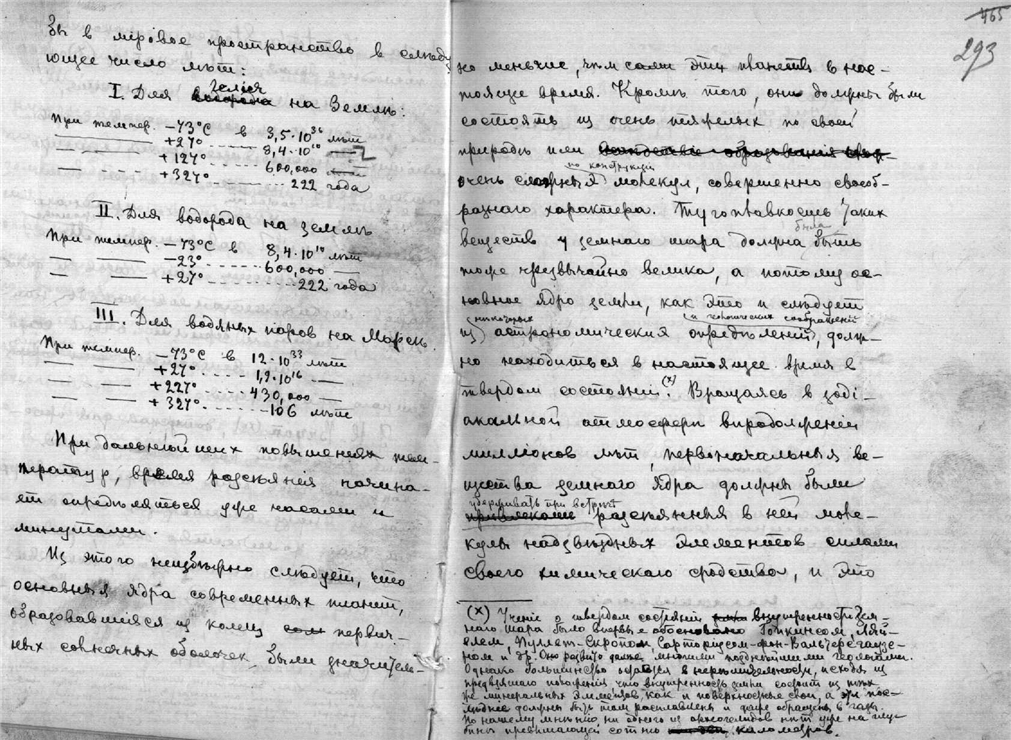 бы в міровое пространство в слѣду-
ющее число лѣт:
I. Для гелія на Землѣ:
При темпер. —73°C в 3,5·10³⁶ лѣт
— — +27° ------ 8,4·10¹⁰ —
— — +127° ------ 600,000 —
— — +327° ------ 222 года
II. Для водорода на землѣ
При темпер. —73°C в 8,4·10¹⁰ лѣт
— — —23° ------ 600,000 —
— — +27° ------ 222 года
III. Для водяных паров на Марсѣ.
При темпер. —73°C в 12·10³³ лѣт
— — +27° ------ 1,9·10¹⁶ —
— — +227° ------ 430,000 —
— — +327° ------ 106 лѣт
При дальнѣйших повышеніях тем-
ператур, время разсѣянія начина-
ет опредѣляться уже часами и
минутами.
Из этого неизбѣжно слѣдует, что
основныя ядра современных планет,
образовавшіяся из колец первич-
ных солнечных оболочек, были значитель-
465
293
но меньше, чѣм сами эти планеты в нас-
тоящее время. Кромѣ того, они должны были
состоять из очень тяжелых по своей
природѣ или
по конструкціи
очень сложных молекул, совершенно своеоб-
разнаго характера. Тугоплавкость таких
была
веществ у земнаго шара должна быть
тоже чрезвычайно велика, а потому ос-
новное ядро земли, как это и слѣдует
и геологических соображеній
из астрономическия опредѣленій, долж-
но находиться в настоящее время в
твердом состояніи.(x) Вращаясь в зоді-
акальной атмосферѣ впродолженіи
милліонов лѣт, первоначальныя ве-
щества земнаго ядра должны были
удерживать при встрѣчѣ
разсѣянныя в ней моле-
кулы надзвѣздных элементов силами
своего химическаго сродства, и это
(x) Ученіе о твердом состояніи внутренности зем-
наго шара было впервые обосновано Гопкинсом, Ляй-
елем, Пуллет-Скропом, Сарторіусом-фон-Вальтерсгаузе-
ном и др. Оно развито далее многими позднѣйшими геологами.
Однако большинство обратися в нерѣшительности, исходя из
предвзятаго положенія что внутренность земли состоит из тѣх
же минеральных элементов, как и поверхностные слои, а эти пос-
лѣдніе должны быть там расплавлены и даже обращены в газы.
По нашему мнѣнію, ни одного из археогелидов нѣт уже на глу-
бинѣ превышающей сотню километров.